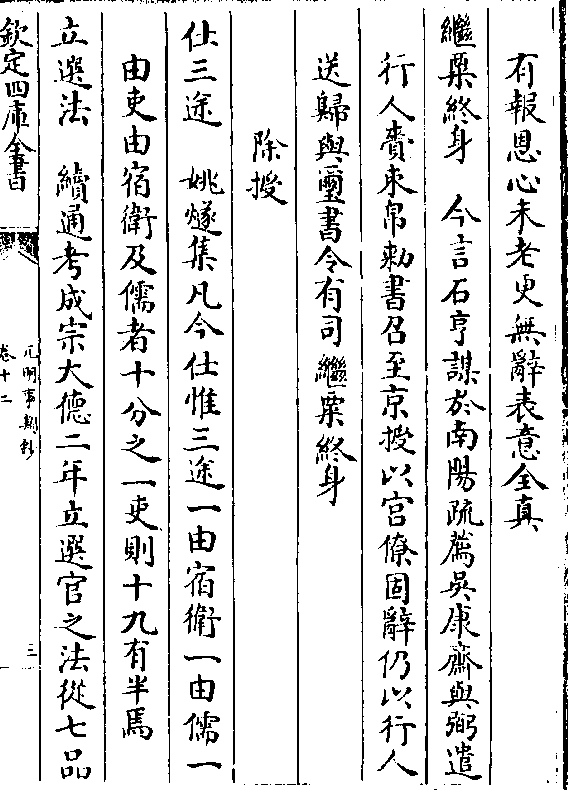 有報恩心未老更無辭表意全真
繼粟終身　今言石亨謀於南陽疏薦吳康齋與弼遣
行人賫束帛勅書召至京授以宮僚固辭仍以行人
送歸與璽書令有司繼粟終身
除授
仕三途　姚燧集凡今仕惟三途一由宿衛一由儒一
由吏由宿衛及儒者十分之一吏則十九有半焉
立選法　續通考成宗大德二年立選官之法從七品
欽定四庫全書
元明事類鈔
卷十二
三